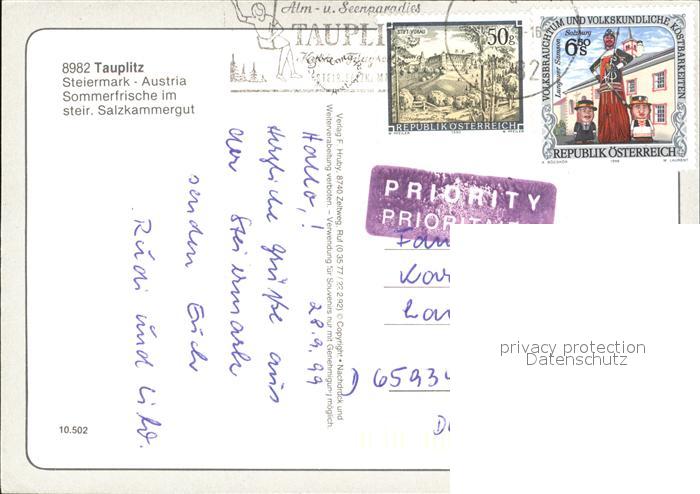 Alm - u. Seenparadies
TAUPLI
8982 Tauplitz
Steiermark · Austria
Sommerfrische im
steir. Salzkammergut
STIFT VORAU
50g
REPUBLIK ÖSTERREICH
1990
VOLKSBRAUCHTUM UND VOLKSKUNDLICHE KOSTBARKEITEN
Salzburg
Lungauer Samson
6.50 S
REPUBLIK ÖSTERREICH
1996
PRIORITY
PRIORIT
Verlag F. Hruby, 8740 Zeltweg, Ruf (0 35 77 / 22 2 92) © Copyright • Nachdruck und
Weiterverarbeitung verboten. – Verwendung für Souvenirs nur mit Genehmigung möglich.
Hallo,! 28.9.99
Herzliche Grüße aus
der Steiermark
senden Euch
Rudi und
Fam
Kar
D 6593
10.502
privacy protection
Datenschutz